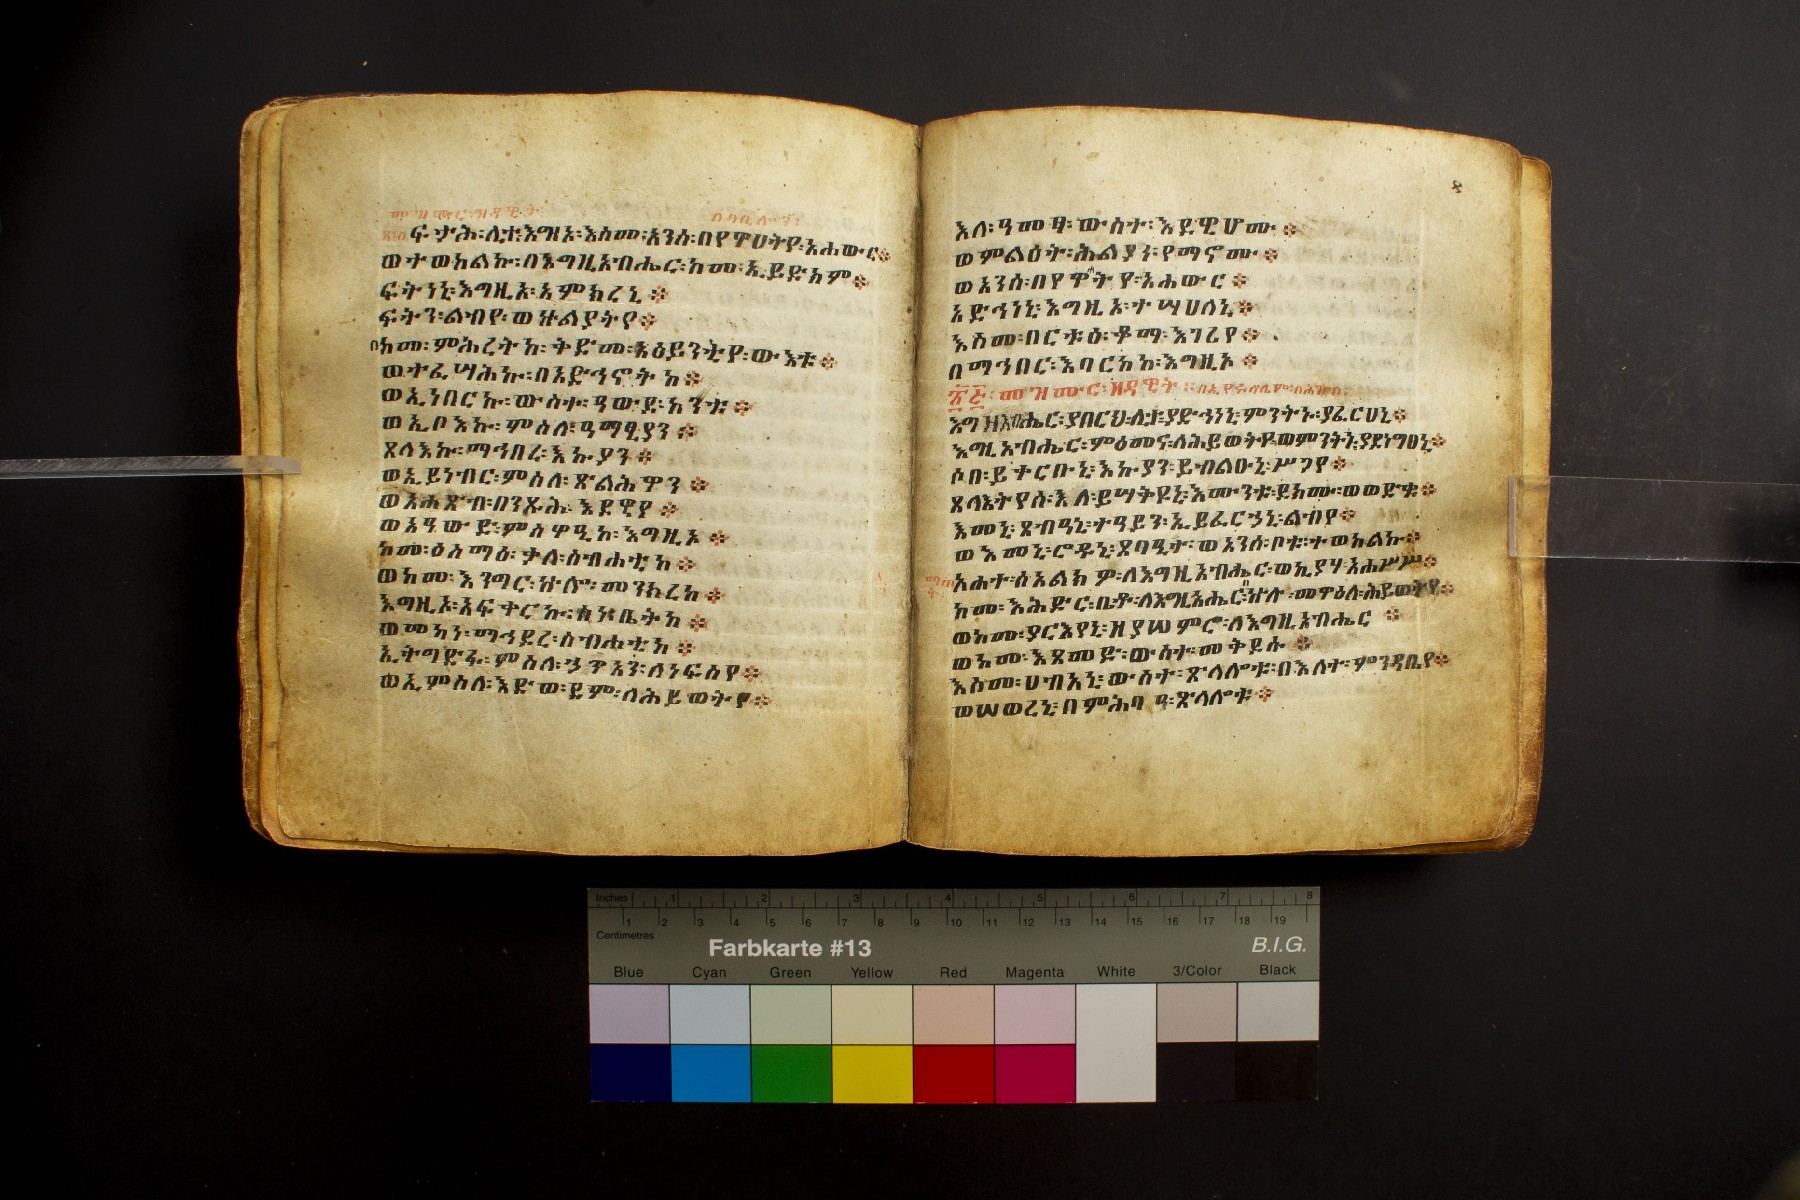 መዝሙር፡ዘዳዊት፡
ፍታሕ፡ሊተ፡እግዚኦ፡እስመ፡አንሰ፡በየዋሀትየ፡አሐውር፨
ወተወከልኩ፡በእግዚአብሔር፡ከመ፡ኢይድክም፨
ፍትነኒ፡እግዚኦ፡አምክረኒ፨
ፍትን፡ልብየ፡ወኵልያትየ፨
ከመ፡ምሕረትከ፡ቅድመ፡አዕይንትየ፡ውእቱ፨
ወተፈሣሕኩ፡በአድኅኖትከ፨
ወኢነበርኩ፡ውስተ፡ዓውደ፡ከንቱ፨
ወኢቦእኩ፡ምስለ፡ዓማፂያን፨
ጸላእኩ፡ማኅበረ፡እኩያን፨
ወኢይነብር፡ምስለ፡ጽልሕዋን፨
ወአሐጽብ፡በንጹሕ፡እደዊየ፨
ወአዓውድ፡ምስዋዒከ፡እግዚኦ፨
ከመ፡ዕስማዕ፡ቃለ፡ስብሐቲከ፨
ወከመ፡እንግር፡ኵሎ፡መንክረከ፨
እግዚኦ፡አፍቀርኩ፡ቤትከ፨
ወመካነ፡ማኅደረ፡ስብሐቲከ፨
ኢትግድፋ፡ምስለ፡ኃጥአን፡ለነፍስየ፨
ወኢምስለ፡እድወ፡ደም፡ለሕይወትየ፨
እለ፡ዓመፃ፡ውስተ፡እደዊሆሙ፨
ወምልዕት፡ሕልያነ፡የማኖሙ፨
ወአንሰ፡በየዋትየ፡አሐውር፨
አድኅነኒ፡እግዚኦ፡ተሣሀለኒ፨
እስመ፡በርቱዕ፡ቆማ፡እገሪየ፨
በማኅበር፡እባርከከ፡እግዚኦ፨
፳፮፡መዝሙር፡ዘዳዊት፡፡
እግዚአብሔር፡ያበርህ፡ሊተ፡ያድኅነኒ፡ምንትኑ፡ያፈርሀኒ፨
እግዚአብሔር፡ምዕመና፡ለሕይወትየ፡ወምንትኑ፡ያደነግፀኒ፨
ሶበ፡ይቀርቡኒ፡እኩያን፡ይብልዑኒ፡ሥጋየ፨
ጸላእትየሰ፡እለ፡ይሣትዩኒ፡እሙንቱ፡ደክሙ፡ወወድቁ፨
እመኒ፡ጸብዓኒ፡ተዓይን፡ኢይፈርኃኒ፡ልብየ፨
ወእመኒ፡ሮዱኒ፡ጸባዒት፡ወአንሰ፡ቦቱ፡ተወከልኩ፨
አሐተ፡ሰአልክዎ፡ለእግዚአብሔር፡ወኪያሃ፡አሐሥሥ፨
ከመ፡እሕድር፡ቤቶ፡ለእግዚአብሔር፡ኵሎ፡መዋዕለ፡ሕይወትየ፨
ወከመ፡ያርእየኒ፡ዘያሠምሮ፡ለእግዚአብሔር፨
ወከመ፡እጸመድ፡ውስተ፡መቅደሱ፨
እስመ፡ሀብአኒ፡ውስተ፡ጽላሎቱ፡በእለተ፡ምንዳቤየ፨
ወሠወረኒ፡በምሕባዓ፡ጽላሎቱ፨
Inches 1 2 3 4 5 6 7 8
1 2 3 4 5 6 7 8 9 10 11 12 13 14 15 16 17 18 19
Centimetres
Farbkarte #13 B.I.G.
Blue Cyan Green Yellow Red Magenta White 3/Color Black